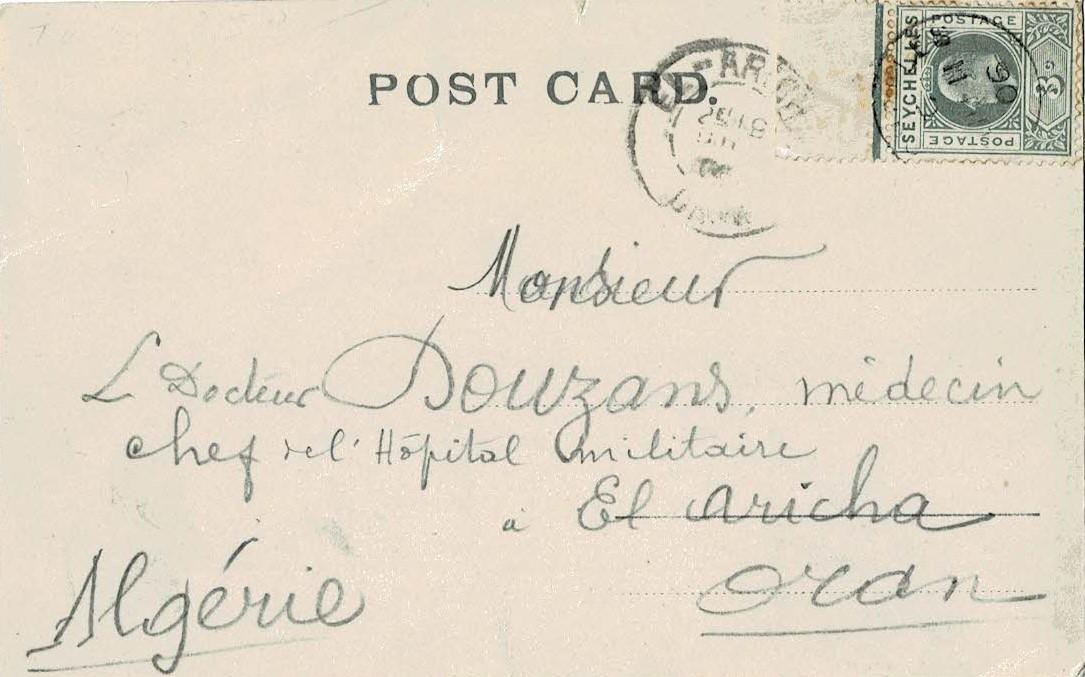 POST CARD.
SEYCHELLES
POSTAGE
POSTAGE
3c
EL-ARICHA
Monsieur
L Docteur Douzans, médecin
chef de l'Hôpital militaire
à El Aricha
Oran
Algérie